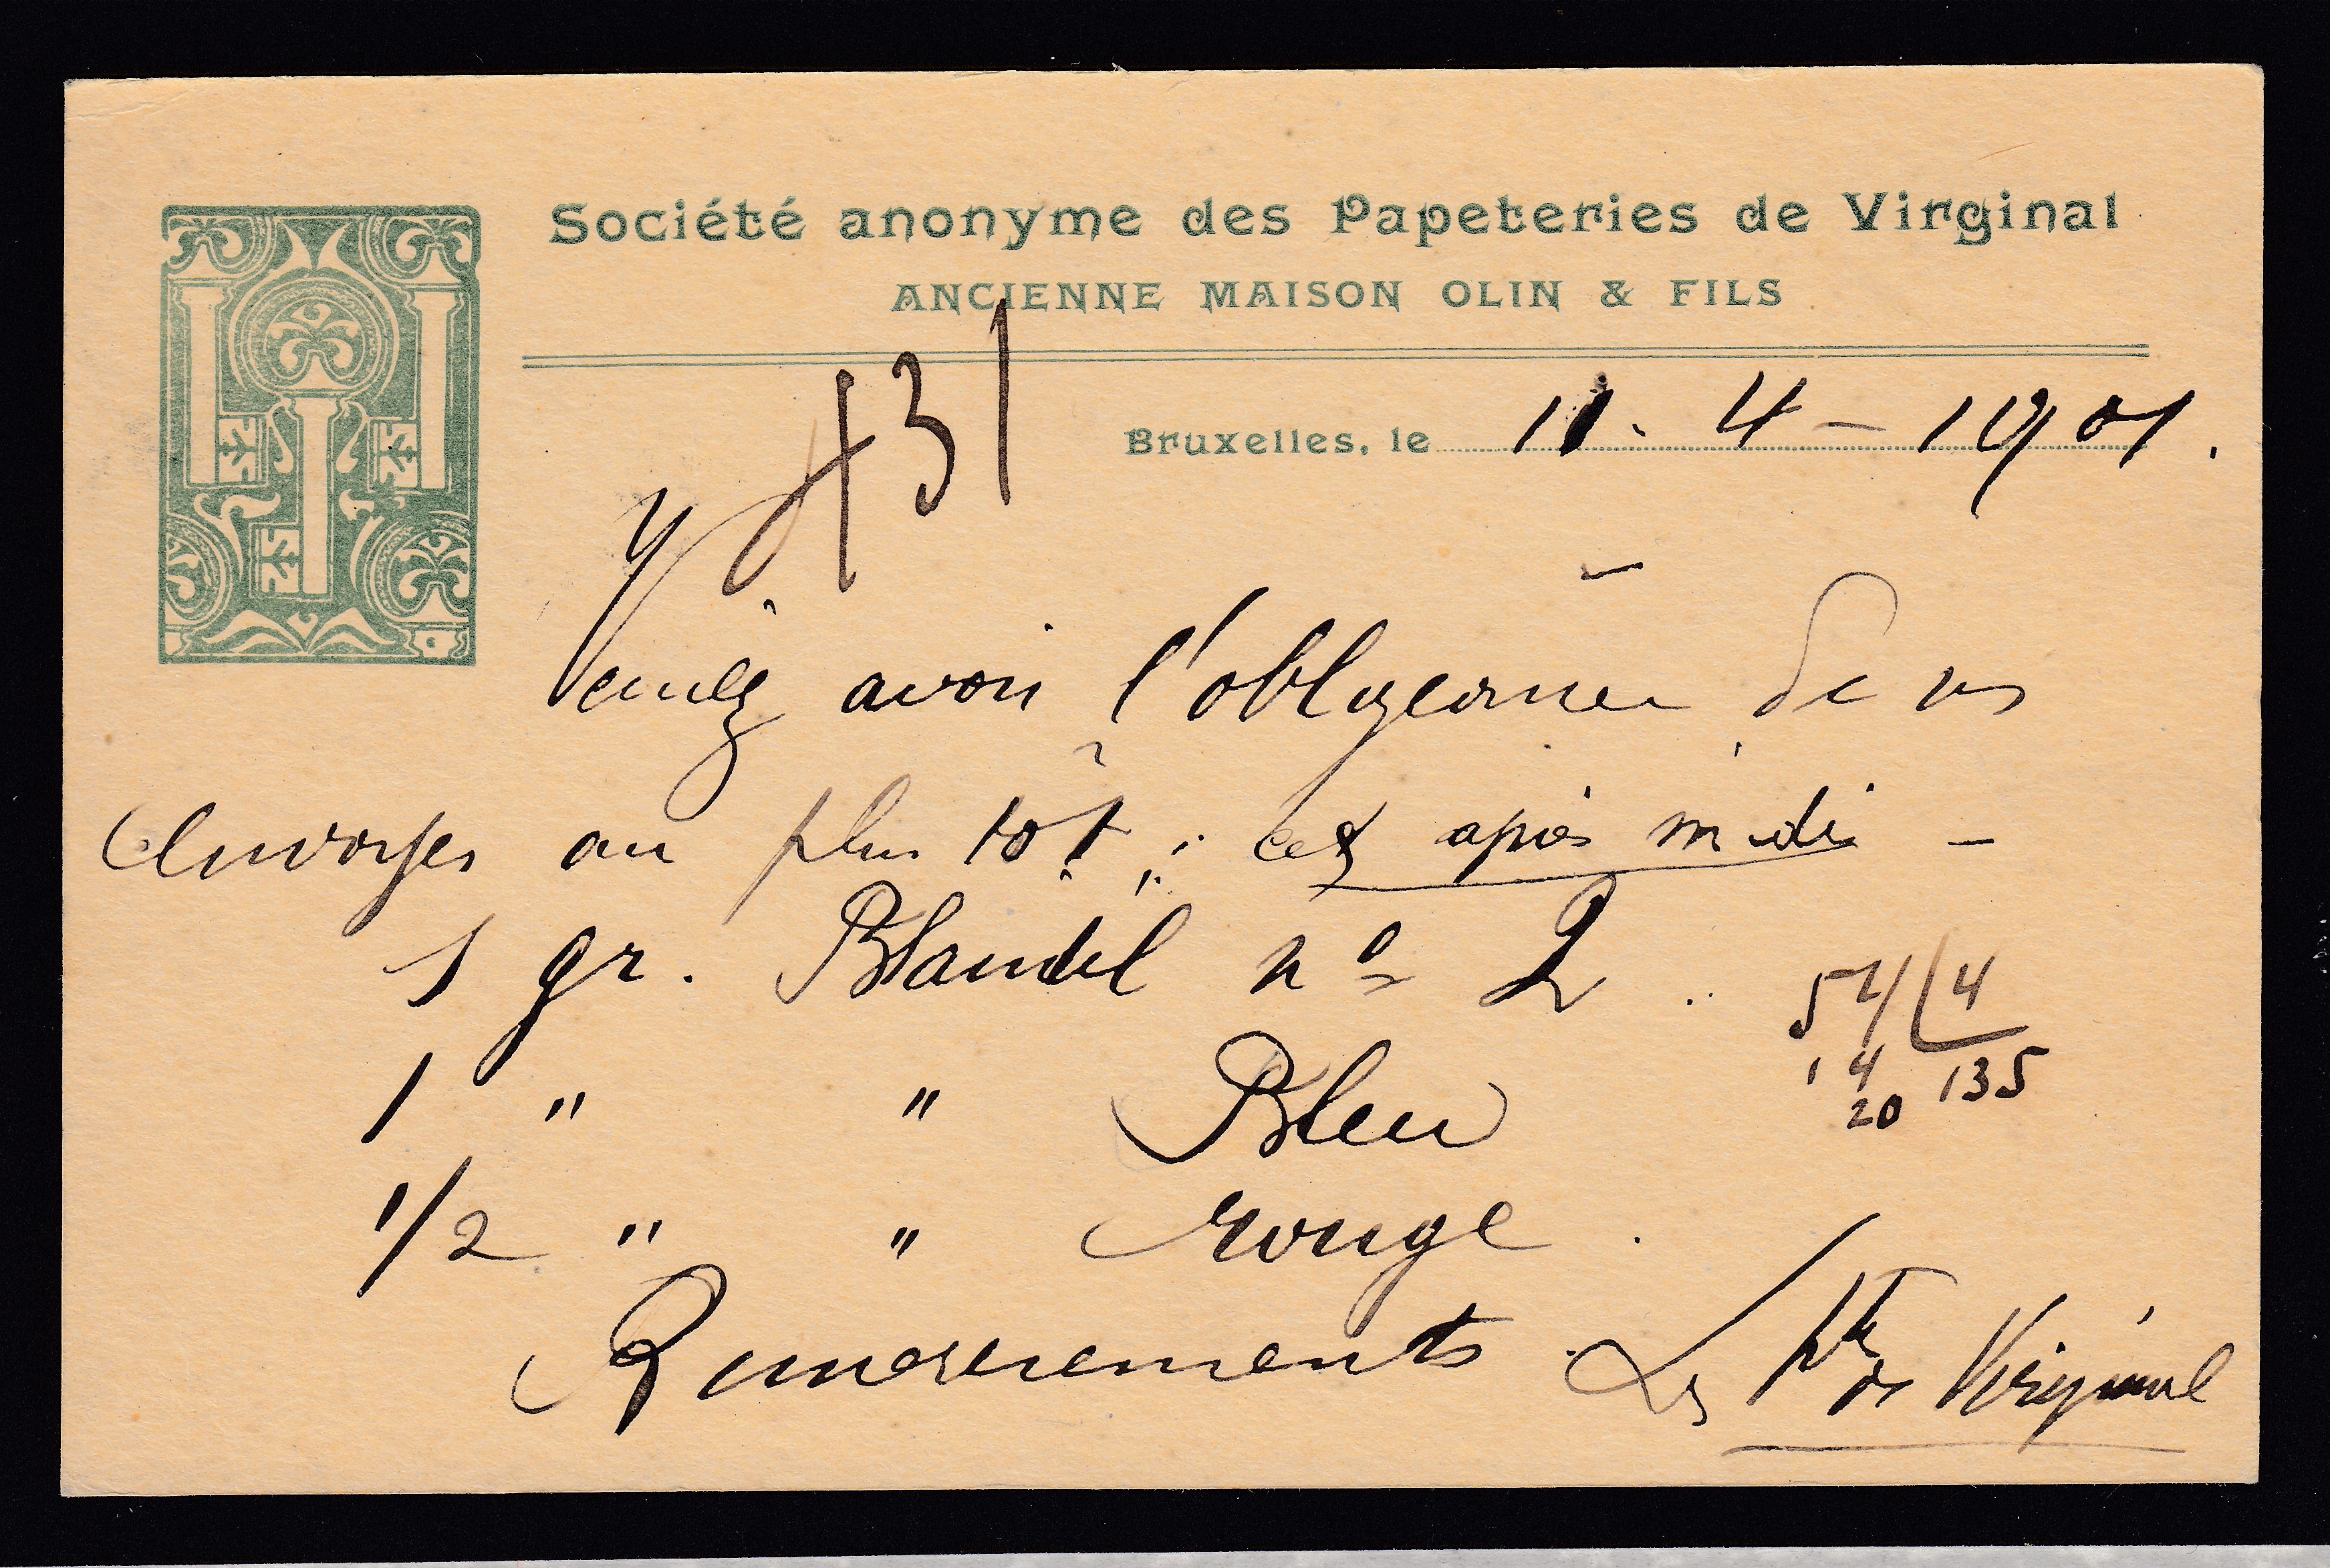 Société anonyme des Papeteries de Virginal
ANCIENNE MAISON OLIN & FILS
431
Bruxelles, le 11 - 4 - 1901.
Veuillez avoir l'obligeance de ns
envoyer au plus tôt, cet après midi -
1 gr. Blandel nº 2
1 " " Bleu
1/2 " " rouge.
54 4
14 135
20
Remerciements. Les Ptes de Virginal